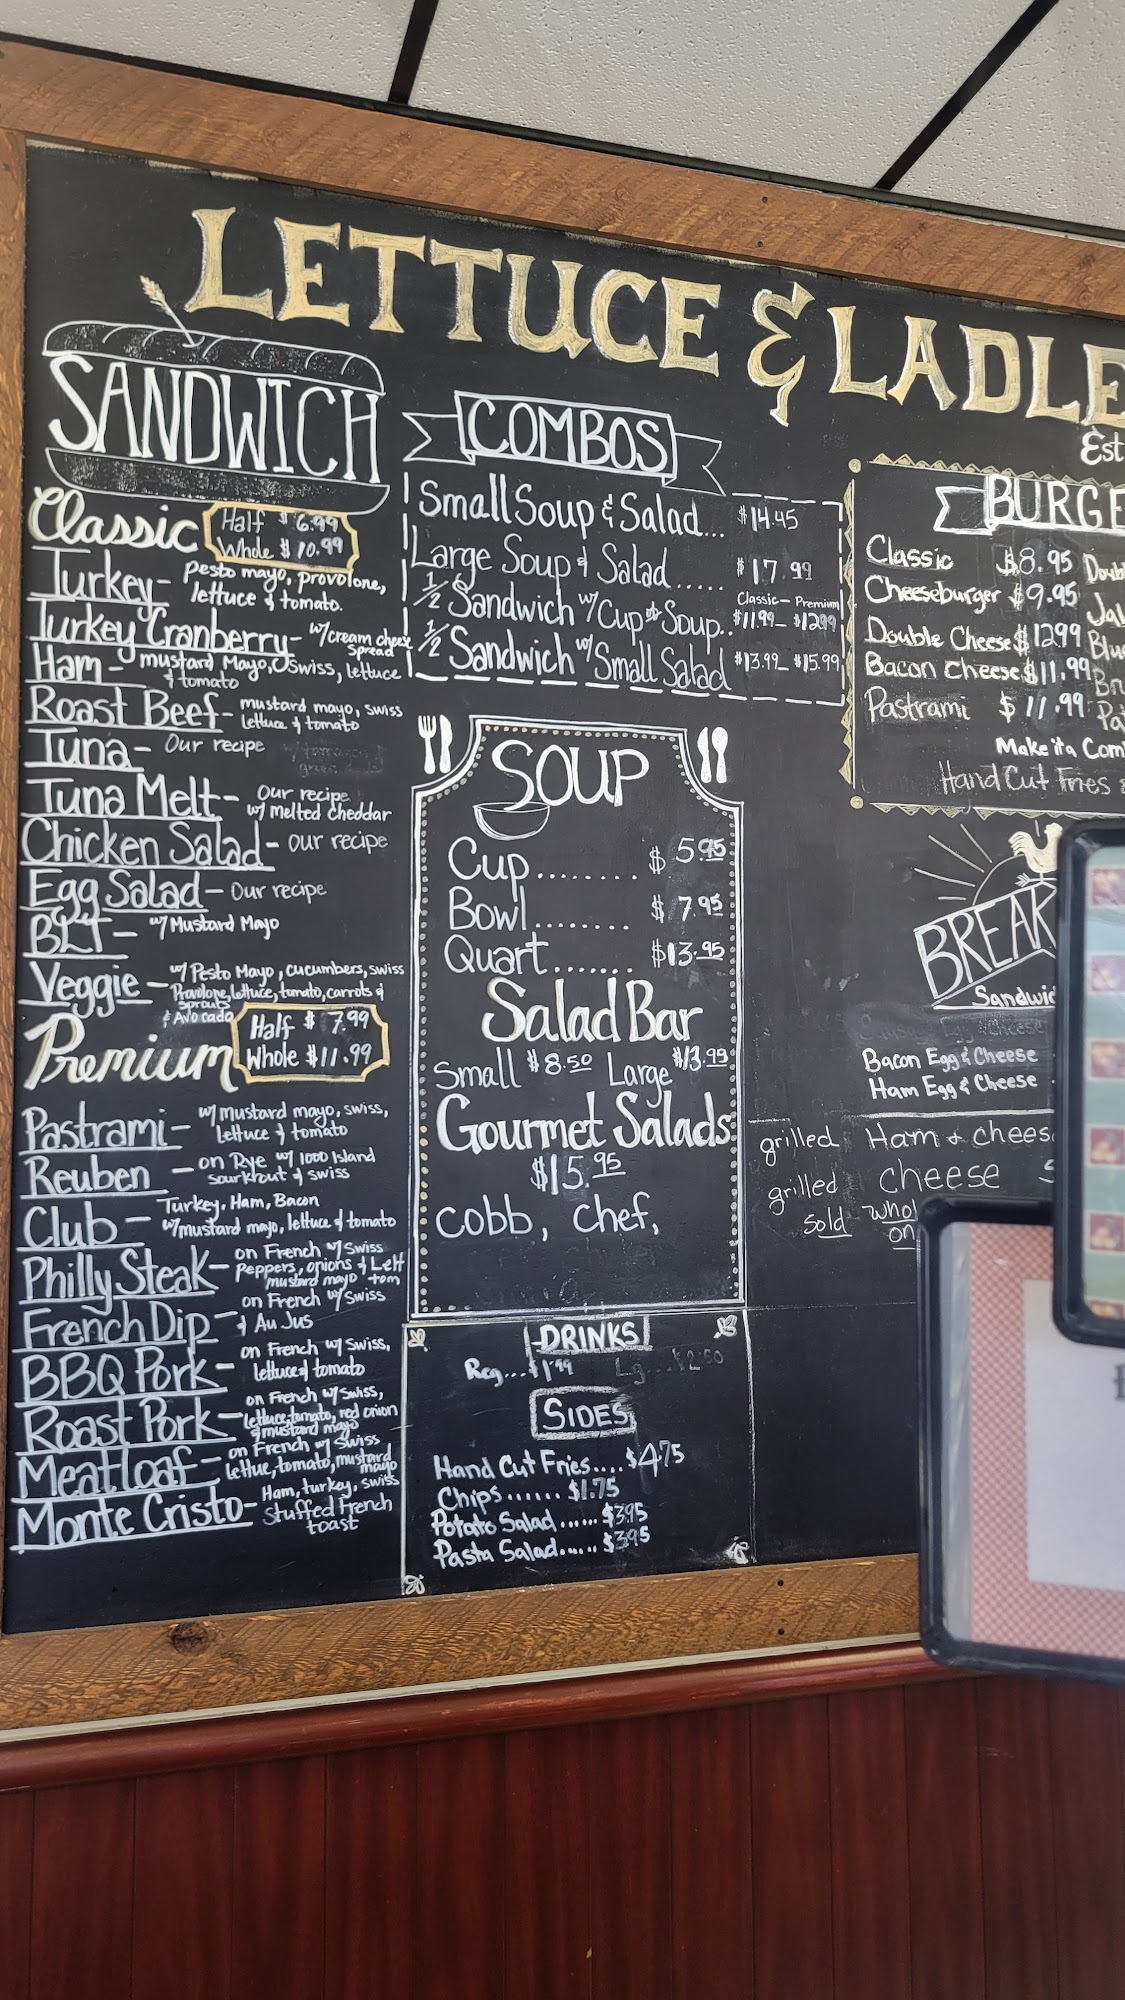 LETTUCE & LADLE
Est
SANDWICH
Classic
Half $ 6.99
Whole $ 10.99
Turkey - Pesto mayo, provolone,
lettuce & tomato.
Turkey Cranberry - w/ cream cheese
spread
Ham - mustard Mayo, Swiss, lettuce
& tomato
Roast Beef - mustard mayo, swiss
lettuce & tomato
Tuna - Our recipe
Tuna Melt - our recipe
w/ melted cheddar
Chicken Salad - our recipe
Egg Salad - Our recipe
BLT - w/ Mustard Mayo
Veggie - w/ Pesto Mayo, cucumbers, swiss
Provolone, lettuce, tomato, carrots &
Sprouts
& Avocado
Premium
Half $ 7.99
Whole $11.99
Pastrami - w/ mustard mayo, swiss,
lettuce & tomato
Reuben - on Rye w/ 1000 Island
sourkrout & swiss
Club - Turkey, Ham, Bacon
w/ mustard mayo, lettuce & tomato
Philly Steak - on French w/ Swiss
Peppers, onions & Lett
mustard mayo tom
French Dip - on French w/ Swiss
& Au Jus
BBQ Pork - on French w/ Swiss,
lettuce & tomato
Roast Pork - on French w/ Swiss,
lettuce, tomato, red onion
& mustard mayo
Meatloaf - on French w/ Swiss
lettuc, tomato, mustard
mayo
Monte Cristo - Ham, turkey, swiss
Stuffed French
toast
COMBOS
Small Soup & Salad... $14.45
Large Soup & Salad..... $17.99
Classic - Premium
1/2 Sandwich w/ Cup of Soup.. $11.99 - $12.99
1/2 Sandwich w/ Small Salad - $13.99 - $15.99
SOUP
Cup........ $ 5.95
Bowl........ $ 7.95
Quart....... $13.95
Salad Bar
Small $8.50 Large $13.99
Gourmet Salads
$15.95
Cobb, Chef,
DRINKS
Reg....$1.99 Lg...$2.50
SIDES
Hand Cut Fries.... $4.75
Chips...... $1.75
Potato Salad...... $3.95
Pasta Salad...... $3.95
BURGE
Classic $8.95
Cheeseburger $9.95
Double Cheese $12.99
Bacon Cheese $11.99
Pastrami $ 11.99
Doub
Jal
Blu
Br
Pa
Make it a Com
Hand Cut Fries
BREAK
Sandwic
Bacon Egg & Cheese
Ham Egg & Cheese
grilled Ham & chees
grilled cheese
sold whol
on